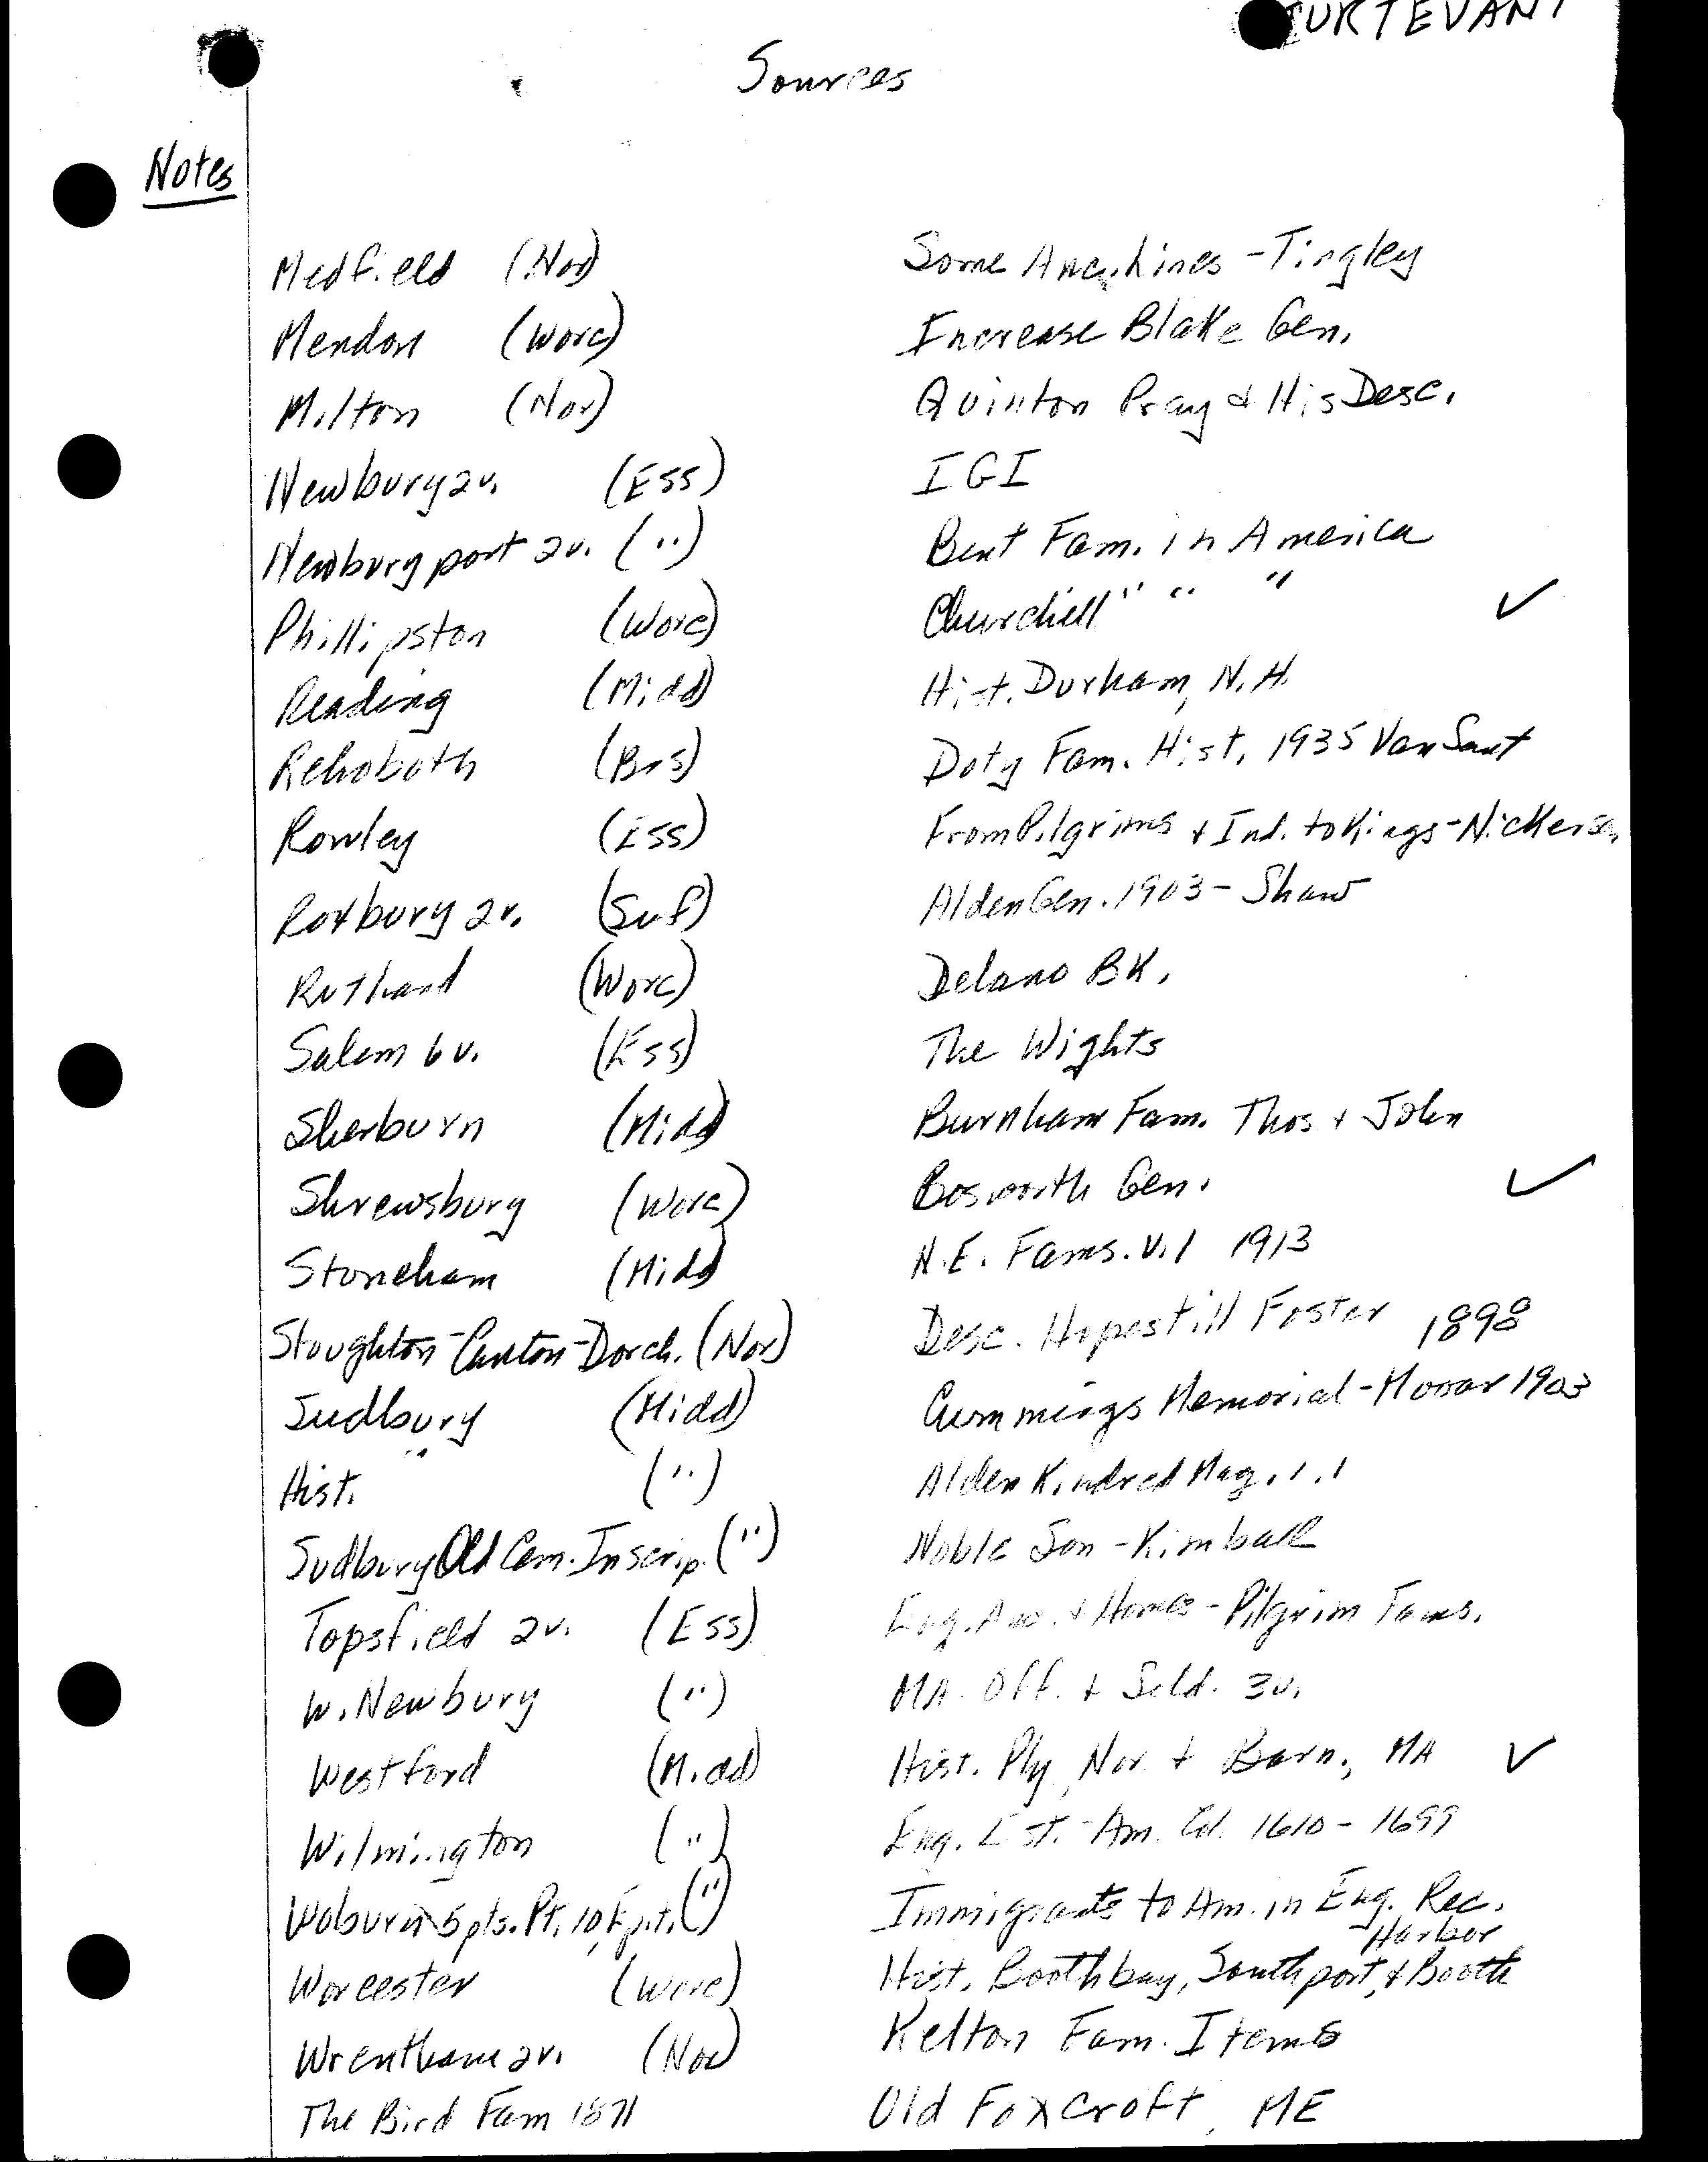 STURTEVANT
Sources
Notes
Medfield (Nor)
Mendon (Worc)
Milton (Nor)
Newbury 2v. (Ess)
Newburyport 2v. (")
Phillipston (Worc)
Reading (Midd)
Rehoboth (Brs)
Rowley (Ess)
Roxbury 2v. (Suf)
Rutland (Worc)
Salem 6v. (Ess)
Sherburn (Midd)
Shrewsbury (Worc)
Stoneham (Midd)
Stoughton-Canton-Dorch. (Nor)
Sudbury (Midd)
Hist. " (")
Sudbury Old Cem. Inscrip. (")
Topsfield 2v. (Ess)
W. Newbury (")
Westford (Midd)
Wilmington (")
Woburn 5 pts. Pt. 10, (")
Worcester (Worc)
Wrentham 2v. (Nor)
The Bird Fam 1871
Some Anc. Lines - Tingley
Increase Blake Gen.
Quinton Pray & His Desc.
IGI
Bent Fam. in America
Churchill " " " ✓
Hist. Durham, N.H.
Doty Fam. Hist. 1935 Van Sant
From Pilgrims + Ind. to Kings - Nickerson
Alden Gen. 1903 - Shaw
Delano BK.
The Wights
Burnham Fam. Thos + John
Bosworth Gen. ✓
N.E. Fams. V.1 1913
Desc. Hopestill Foster 1898
Cummings Memorial - Mooar 1903
Alden Kindred Mag. 1.1
Noble Son - Kimball
Eng. Anc. + Homes - Pilgrim Fams.
MA. Off. + Sold. 3v.
Hist. Ply, Nor. + Barn., MA ✓
Eng. Est. Am. Col. 1610 - 1699
Immigrants to Am. in Eng. Rec.
Hist. Boothbay, Southport, & Booth Harbor
Kelton Fam. Items
Old Foxcroft, ME